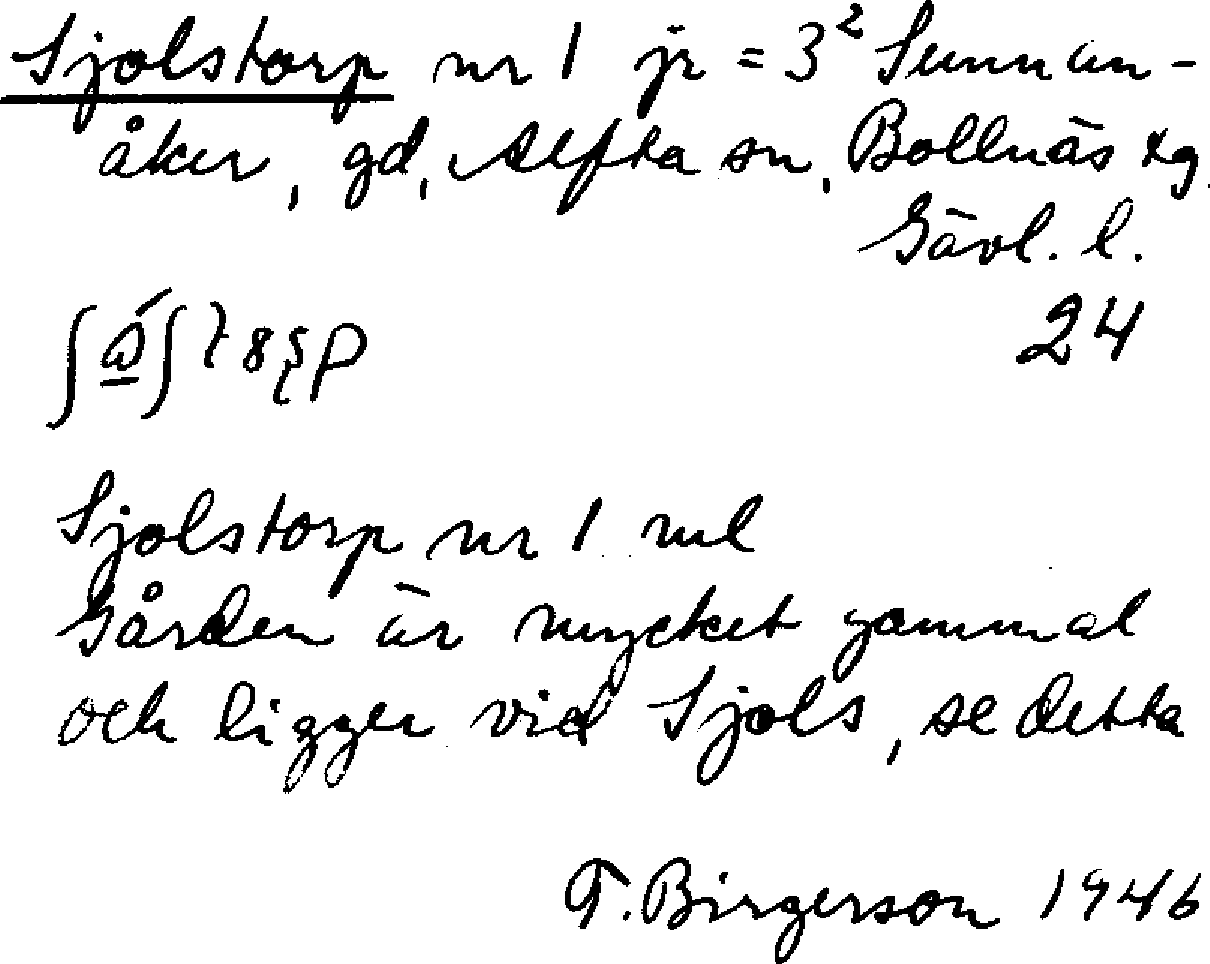 Sjolstorp nr 1 jr = 3² Sunnan-
åker, gd, Alfta sn, Bollnäs tg.
Gävl. l.
24
Sjolstorp nr 1 ml
Gården är mycket gammal
och ligger vid Sjols, se detta
T. Birgerson 1946